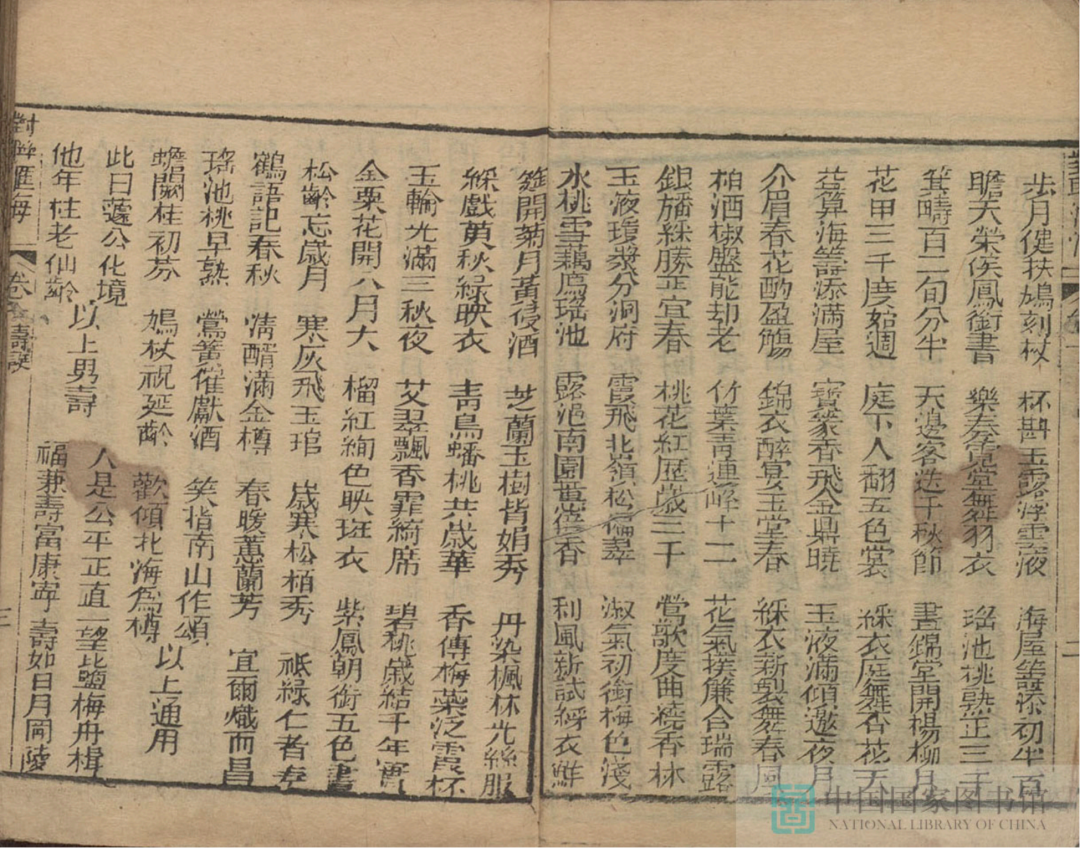 步月健扶鳩刻杖 杯斟玉露浮雲液 海屋籌添初半百
瞻天榮俟鳳銜書 樂奏霓裳舞羽衣 瑤池桃熟正三千
箕疇百二旬分半 天邊客送千秋節 晝錦堂開楊柳月
花甲三千度始週 庭下人翻五色裳 綵衣庭舞杏花天
算海籌添滿屋 寶篆香飛金鼎曉 玉液滿傾邀夜月
介眉春花酌盈觴 錦衣醉宴玉堂春 綵衣新製舞春風
柏酒椒盤能却老 竹葉青連峰十二 花氣撲簾含瑞露
銀旛綵勝正宜春 桃花紅歷歲三千 鶯歌度曲繞香林
玉液瓊漿分洞府 霞飛北嶺松偏翠 淑氣初銜梅色淺
水桃雪藕薦瑤池 露浥南園菊蕊香 利風新試綵衣鮮
筵開菊月黃侵酒 芝蘭玉樹皆娟秀 丹染楓林光絲服
綵戲萸秋綠映衣 青鳥蟠桃共歲華 香傳梅蕊泛霞杯
玉輪光滿三秋夜 艾翠飄香霏綺席 碧桃歲結千年實
金粟花開八月天 榴紅絢色映斑衣 紫鳳朝銜五色書
松齡忘歲月 寒灰飛玉琯 歲寒松栢秀 祗綠仁者壽
鶴語記春秋 清醑滿金樽 春暖蕙蘭芳 宜爾熾而昌
瑤池桃早熟 鶯簧催獻酒 笑指南山作頌
蟾闕桂初芬 鳩杖祝延齡 歡傾北海為樽 以上通用
此日蘧公化境 人是公平正直一望鹽梅舟楫
他年柱老仙齡 以上男壽 福兼壽富康寧 壽如日月岡陵
對聯匯海 卷 壽誕
三
二
中国国家图书馆
NATIONAL LIBRARY OF CHINA